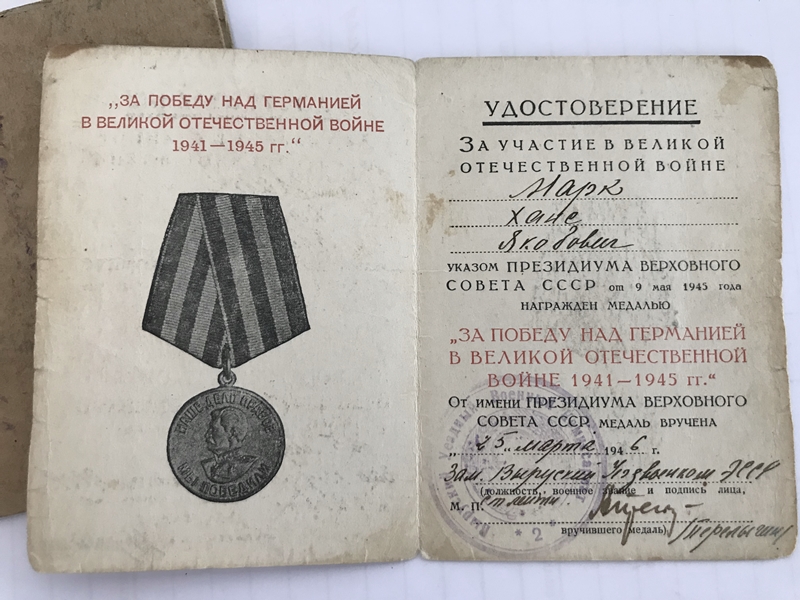 „ЗА ПОБЕДУ НАД ГЕРМАНИЕЙ
В ВЕЛИКОЙ ОТЕЧЕСТВЕННОЙ ВОЙНЕ
1941—1945 гг.“
НАШЕ ДЕЛО ПРАВОЕ
МЫ ПОБЕДИЛИ
УДОСТОВЕРЕНИЕ
ЗА УЧАСТИЕ В ВЕЛИКОЙ
ОТЕЧЕСТВЕННОЙ ВОЙНЕ
Марк
Ханс
Якобович
УКАЗОМ ПРЕЗИДИУМА ВЕРХОВНОГО
СОВЕТА СССР от 9 мая 1945 года
НАГРАЖДЕН МЕДАЛЬЮ
„ЗА ПОБЕДУ НАД ГЕРМАНИЕЙ
В ВЕЛИКОЙ ОТЕЧЕСТВЕННОЙ
ВОЙНЕ 1941—1945 гг.“
ОТ ИМЕНИ ПРЕЗИДИУМА ВЕРХОВНОГО
СОВЕТА СССР МЕДАЛЬ ВРУЧЕНА
„25“ марта 1946 г.
Зам. Выруский Уездвоенком ЭССР
(должность, военное звание и подпись лица,
М. П. Ст. лейт.
вручившего медаль) (Перелыгин)
2